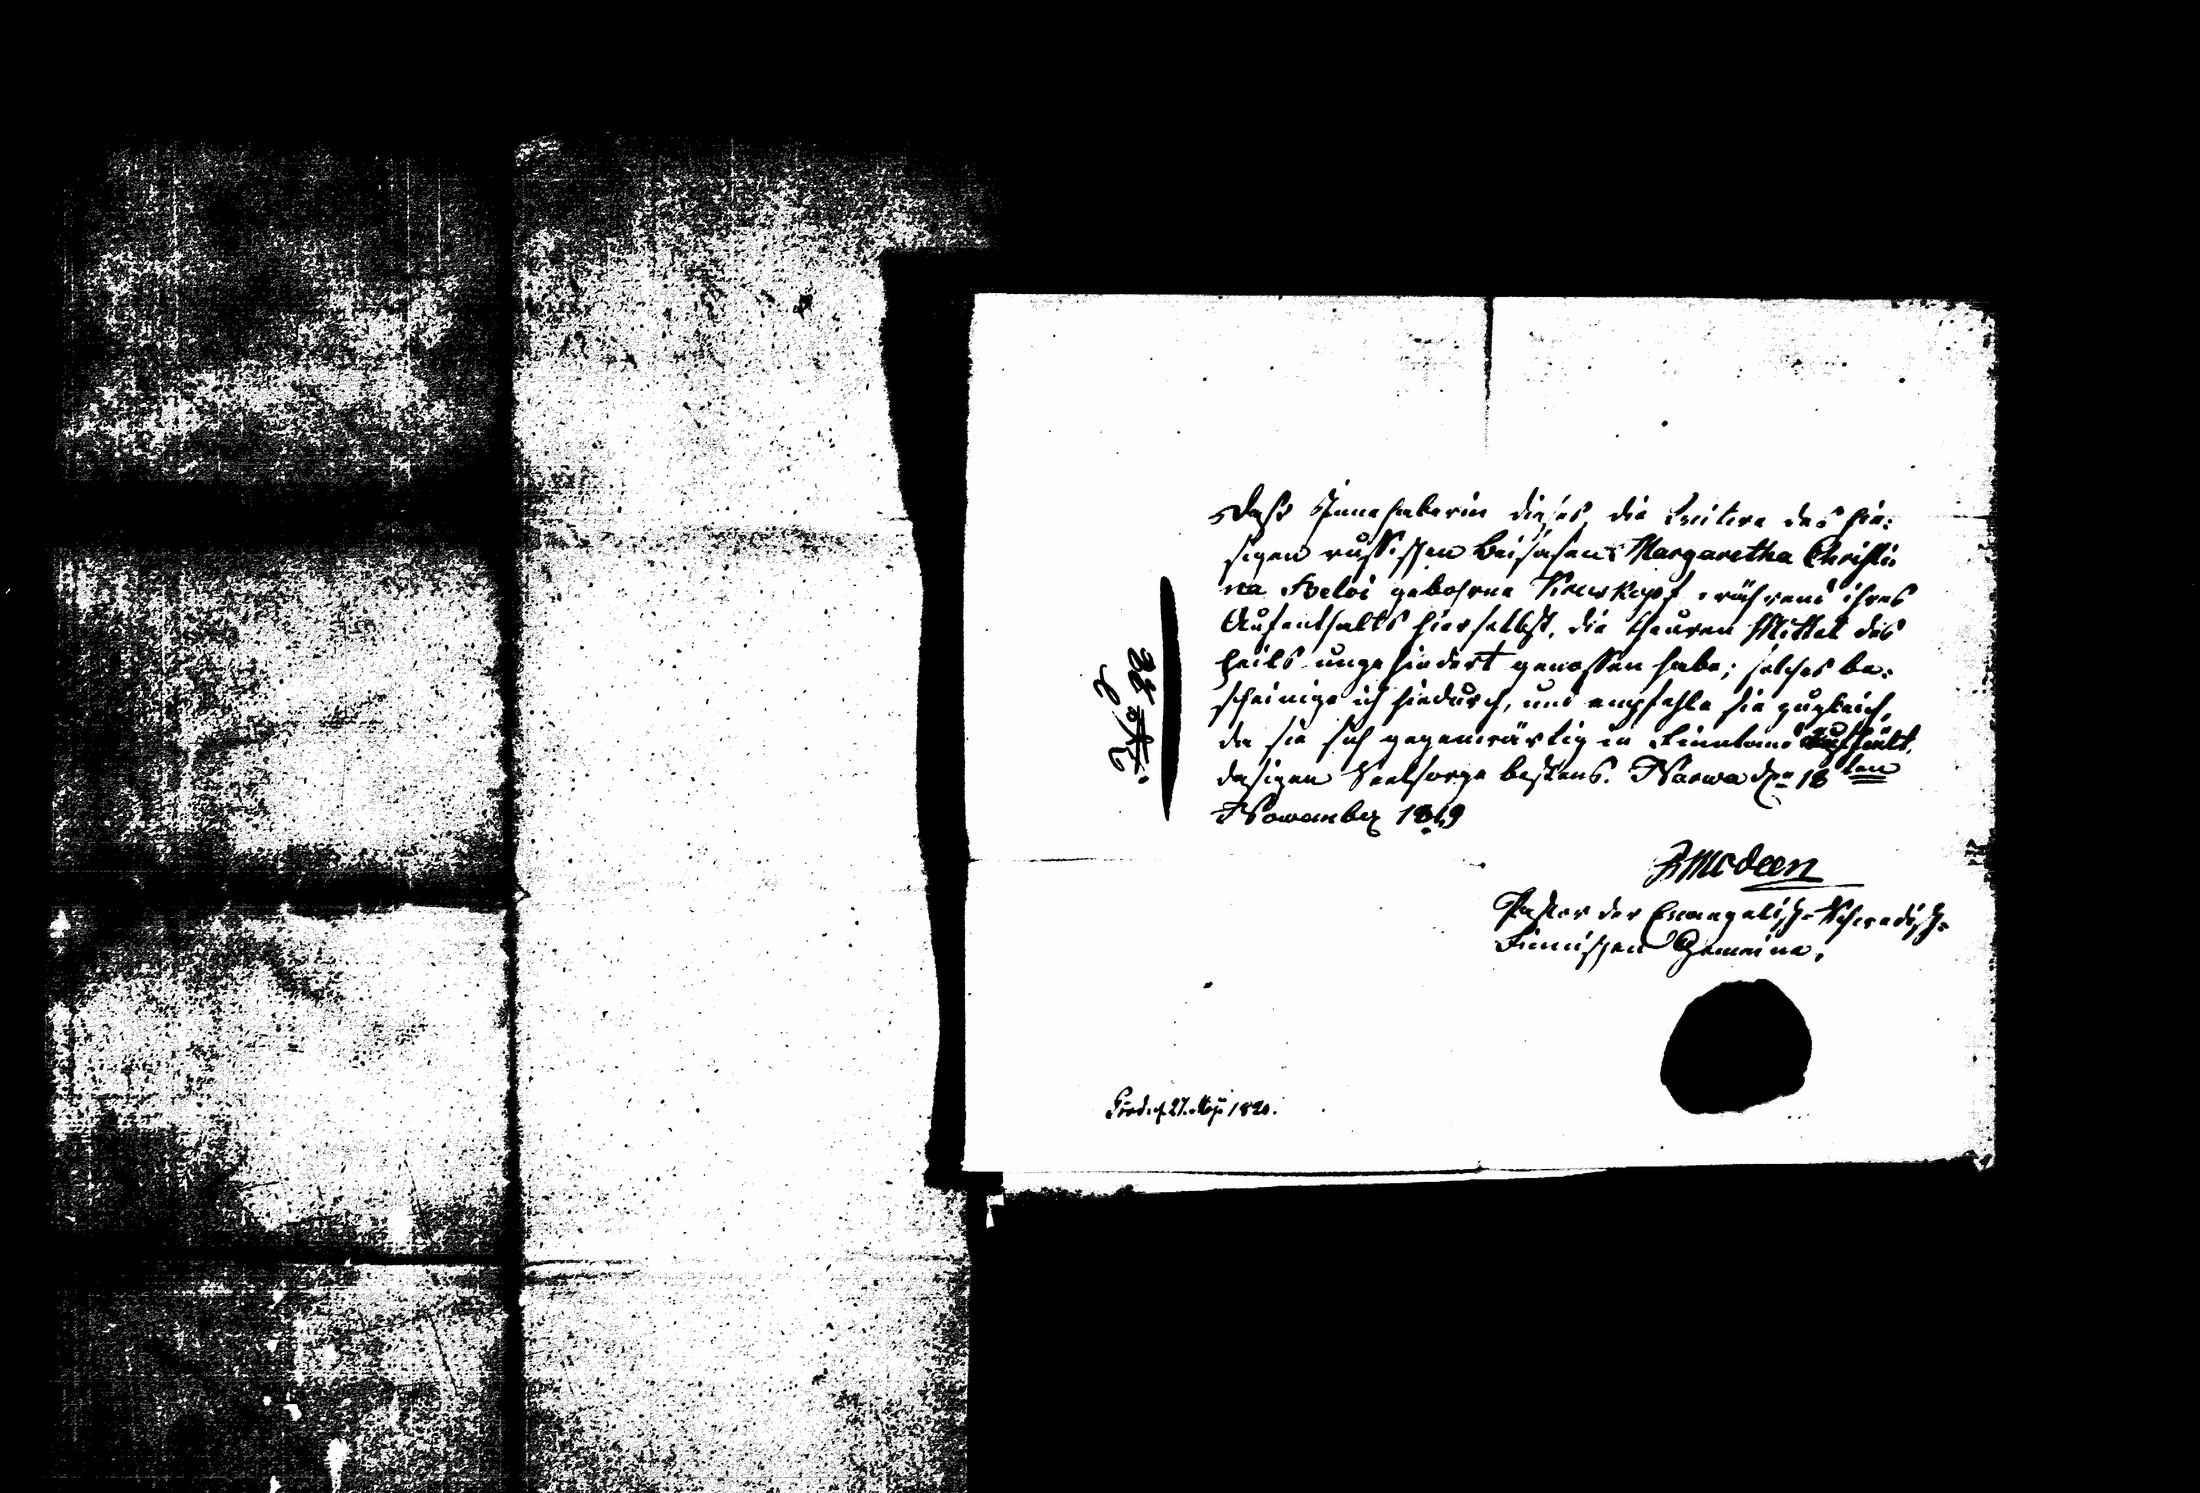 Daß Innehaberin dieses, die Wittwe des hie-
sigen russischen Beisassen: Margaretha Christi-
na Beloi gebohrne während ihres
Aufenthalts hierselbst, die theuren Mittel des
Heils ungehindert genossen habe; solches be-
scheinige ich hiedurch, und empfehle sie zugleich,
da sie sich gegenwärtig in Finnland aufhält,
dasiger Seelsorge bestens. Narwa den 18ten
November 1819
Pastor der Evangelisch-Schwedisch-
Finnischen Gemeine.
27. 1820.